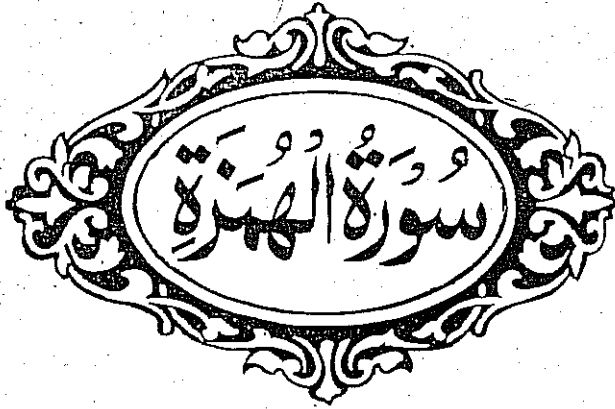 سُورَةُ الْهُمَزَةِ